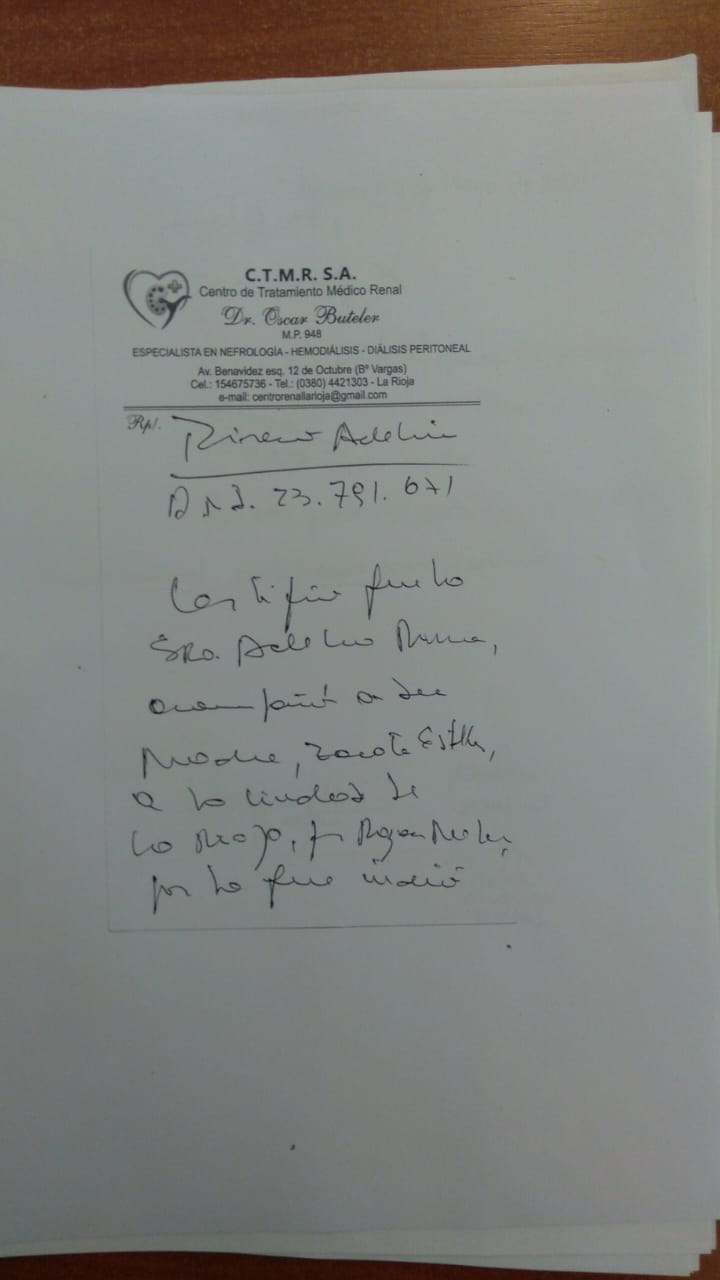 C.T.M.R. S.A.
Centro de Tratamiento Médico Renal
Dr. Oscar Buteler
M.P. 948
ESPECIALISTA EN NEFROLOGÍA - HEMODIÁLISIS - DIÁLISIS PERITONEAL
Av. Benavidez esq. 12 de Octubre (Bº Vargas)
Cel.: 154675736 - Tel.: (0380) 4421303 - La Rioja
e-mail: centrorenallarioja@gmail.com
Rp/.
D.N.I. 23.791.671
Certifico que la
Sra. Adelina
acompañó a su
Madre, Estella,
a la Ciudad de
La Rioja,
por lo que